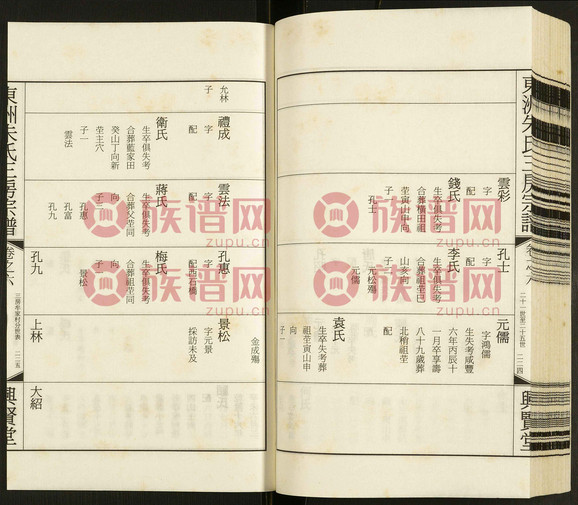 東洲朱氏三房宗譜
卷之六
二十一世至二十五世
二二四
興賢堂
雲彩
字
配
錢氏
生卒俱失考
合葬橫田祖
塋寅山申向
子一
孔士
孔士
字
配
李氏
生卒俱失考
合葬祖塋巳
山亥向
子二
元松殤
元儒
元儒
字鴻儒
生失考咸豐
六年丙辰十
一月卒享壽
八十九歲葬
北稍祖塋
配
袁氏
生卒失考葬
祖塋寅山申
向
子一
金成殤
允林
子一
禮成
字
配
衛氏
生卒俱失考
合葬藍家田
癸山丁向新
塋主穴
子一
雲法
雲法
字
配
蔣氏
生卒俱失考
合葬父塋同
向
子三
孔惠
孔富
孔九
孔惠
字
配西石橋
梅氏
生卒俱失考
合葬祖塋同
向
子一
景松
景松
字元景
採訪未及
孔九
上林
大紹
東洲朱氏三房宗譜
卷之六
三房牟家村分世表
二二五
興賢堂
族谱网
zupu.cn
族谱网
zupu.cn
族谱网
zupu.cn
族谱网
zupu.cn